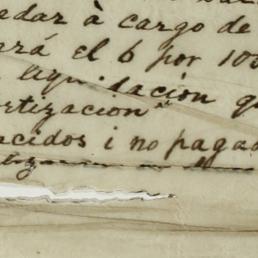 edar à cargo de
ará el 6 por 100
liquidacion q
rtizacion"
ncidos i no pagad